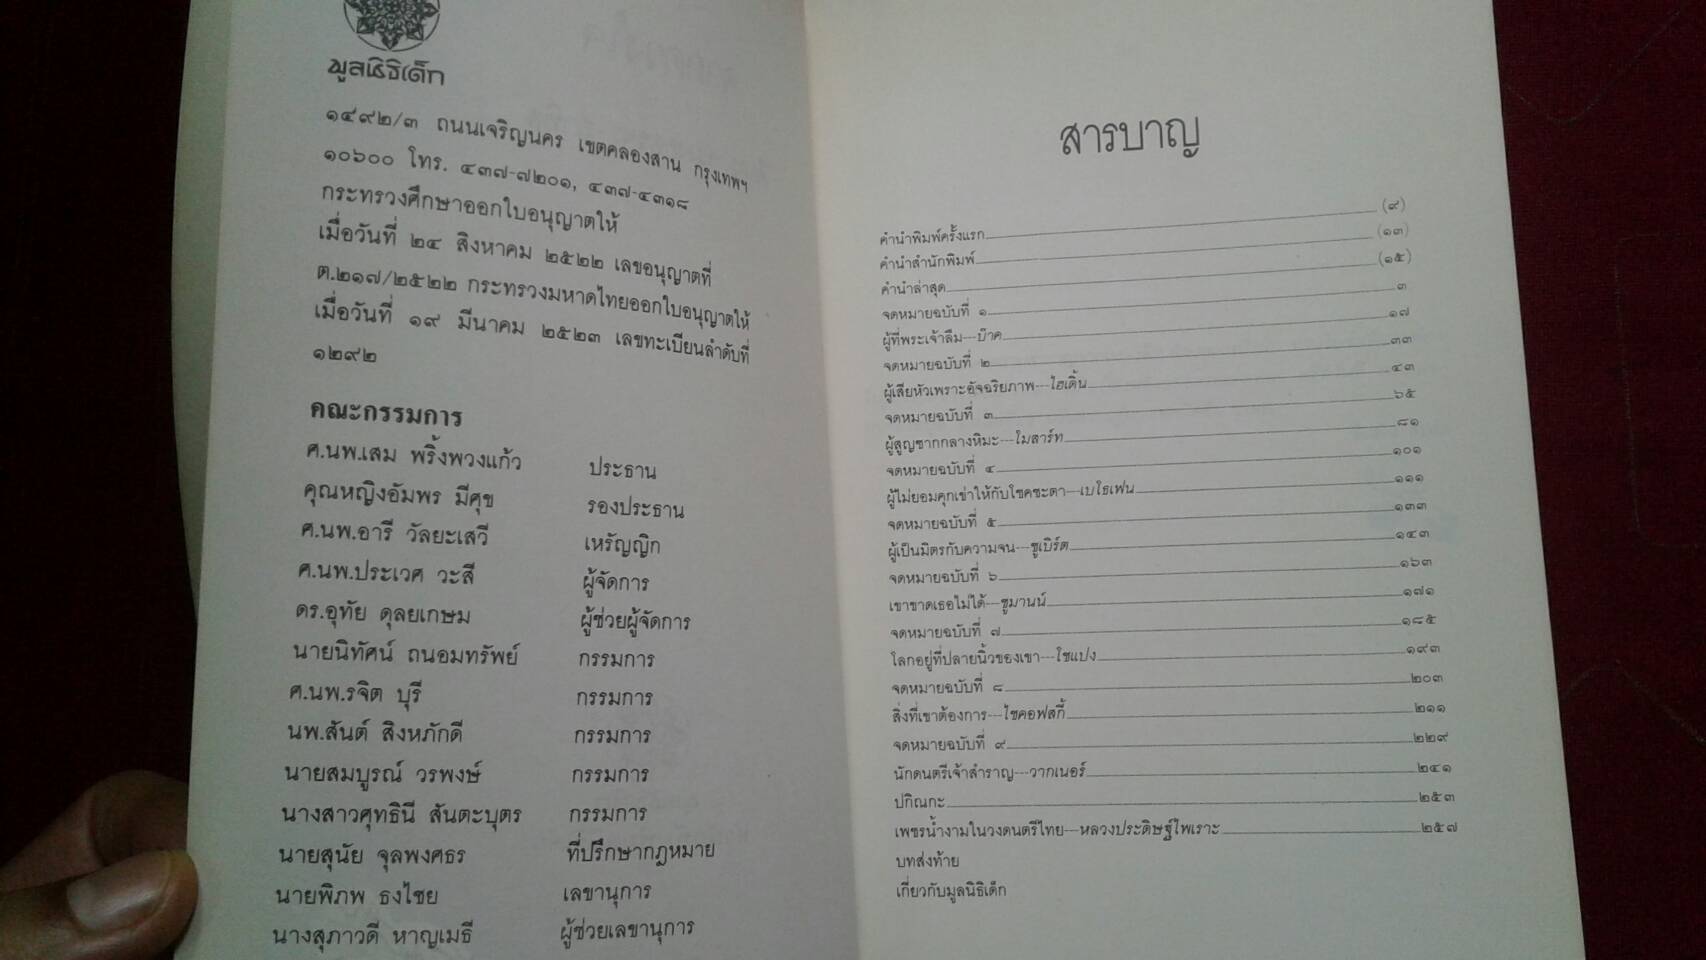 มูลนิธิเด็ก
๑๔๙๒/๓ ถนนเจริญนคร เขตคลองสาน กรุงเทพฯ
๑๐๖๐๐ โทร. ๔๓๗-๗๒๐๑, ๔๓๗-๔๓๑๘
กระทรวงศึกษาออกใบอนุญาตให้
เมื่อวันที่ ๒๔ สิงหาคม ๒๕๒๒ เลขอนุญาตที่
ต.๒๑๗/๒๕๒๒ กระทรวงมหาดไทยออกใบอนุญาตให้
เมื่อวันที่ ๑๙ มีนาคม ๒๕๒๓ เลขทะเบียนลำดับที่
๑๒๙๒
คณะกรรมการ
ศ.นพ.เสม พริ้งพวงแก้ว ประธาน
คุณหญิงอัมพร มีศุข รองประธาน
ศ.นพ.อารี วัลยะเสวี เหรัญญิก
ศ.นพ.ประเวศ วะสี ผู้จัดการ
ดร.อุทัย ดุลยเกษม ผู้ช่วยผู้จัดการ
นายนิทัศน์ ถนอมทรัพย์ กรรมการ
ศ.นพ.รจิต บุรี กรรมการ
นพ.สันต์ สิงหภักดี กรรมการ
นายสมบูรณ์ วรพงษ์ กรรมการ
นางสาวศุทธินี สันตะบุตร กรรมการ
นายสุนัย จุลพงศธร ที่ปรึกษากฎหมาย
นายพิภพ ธงไชย เลขานุการ
นางสุภาวดี หาญเมธี ผู้ช่วยเลขานุการ
สารบาญ
คำนำพิมพ์ครั้งแรก (๙)
คำนำสำนักพิมพ์ (๑๓)
คำนำล่าสุด (๑๕)
จดหมายฉบับที่ ๑ ๓
ผู้ที่พระเจ้าลืม---บ๊าค ๑๗
จดหมายฉบับที่ ๒ ๓๓
ผู้เสียหัวเพราะอัจฉริยภาพ---ไฮเดิ้น ๔๓
จดหมายฉบับที่ ๓ ๖๕
ผู้สูญซากกลางหิมะ---โมสาร์ท ๘๑
จดหมายฉบับที่ ๔ ๑๐๑
ผู้ไม่ยอมคุกเข่าให้กับโชคชะตา---เบโธเฟน ๑๑๑
จดหมายฉบับที่ ๕ ๑๓๓
ผู้เป็นมิตรกับความจน---ชูเบิร์ต ๑๔๓
จดหมายฉบับที่ ๖ ๑๖๓
เขาขาดเธอไม่ได้---ชูมานน์ ๑๗๑
จดหมายฉบับที่ ๗ ๑๘๕
โลกอยู่ที่ปลายนิ้วของเขา---โชแปง ๑๙๓
จดหมายฉบับที่ ๘ ๒๐๓
สิ่งที่เขาต้องการ---ไชคอฟสกี้ ๒๑๑
จดหมายฉบับที่ ๙ ๒๒๙
นักดนตรีเจ้าสำราญ---วากเนอร์ ๒๔๑
ปกิณกะ ๒๕๓
เพชรน้ำงามในวงดนตรีไทย---หลวงประดิษฐ์ไพเราะ ๒๕๗
บทส่งท้าย
เกี่ยวกับมูลนิธิเด็ก